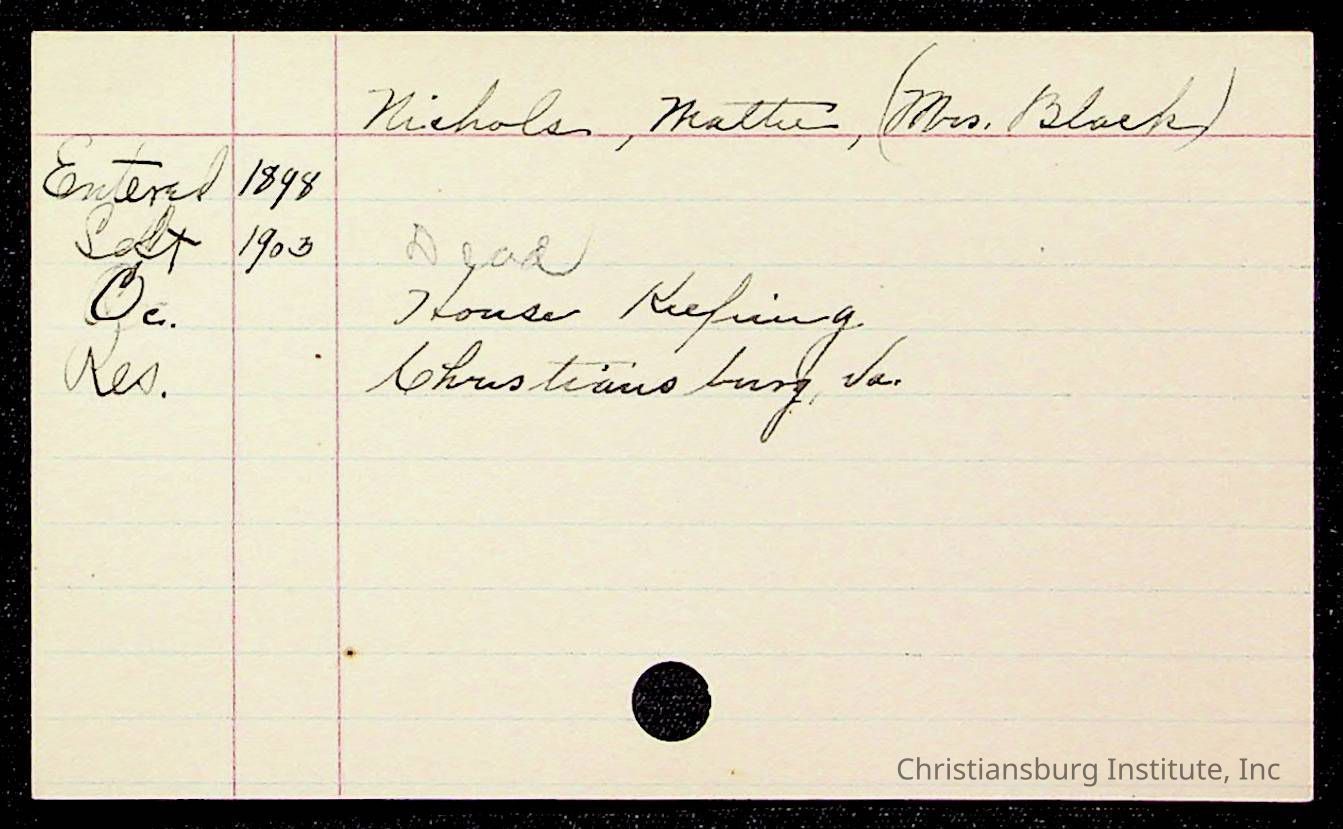 Nichols, Mattie, (Mrs. Black)
Entered 1898
Left 1903 Dead
Oc. House Keeping
Res. Christiansburg, Va.
Christiansburg Institute, Inc